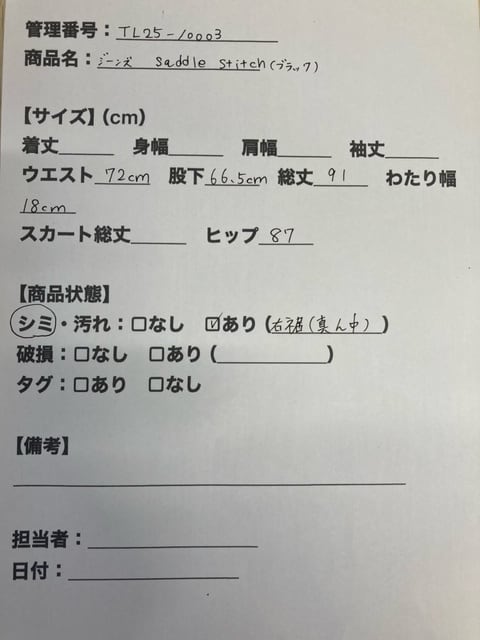 管理番号：TL25-10003
商品名：ジーンズ saddle stitch（ブラック）
【サイズ】（cm）
着丈______ 身幅______ 肩幅______ 袖丈______
ウエスト 72cm 股下 66.5cm 総丈 91 わたり幅
18cm
スカート総丈______ ヒップ 87
【商品状態】
シミ・汚れ：□なし ☑あり（右裾（真ん中））
破損：□なし □あり（____________）
タグ：□あり □なし
【備考】
担当者：
日付：